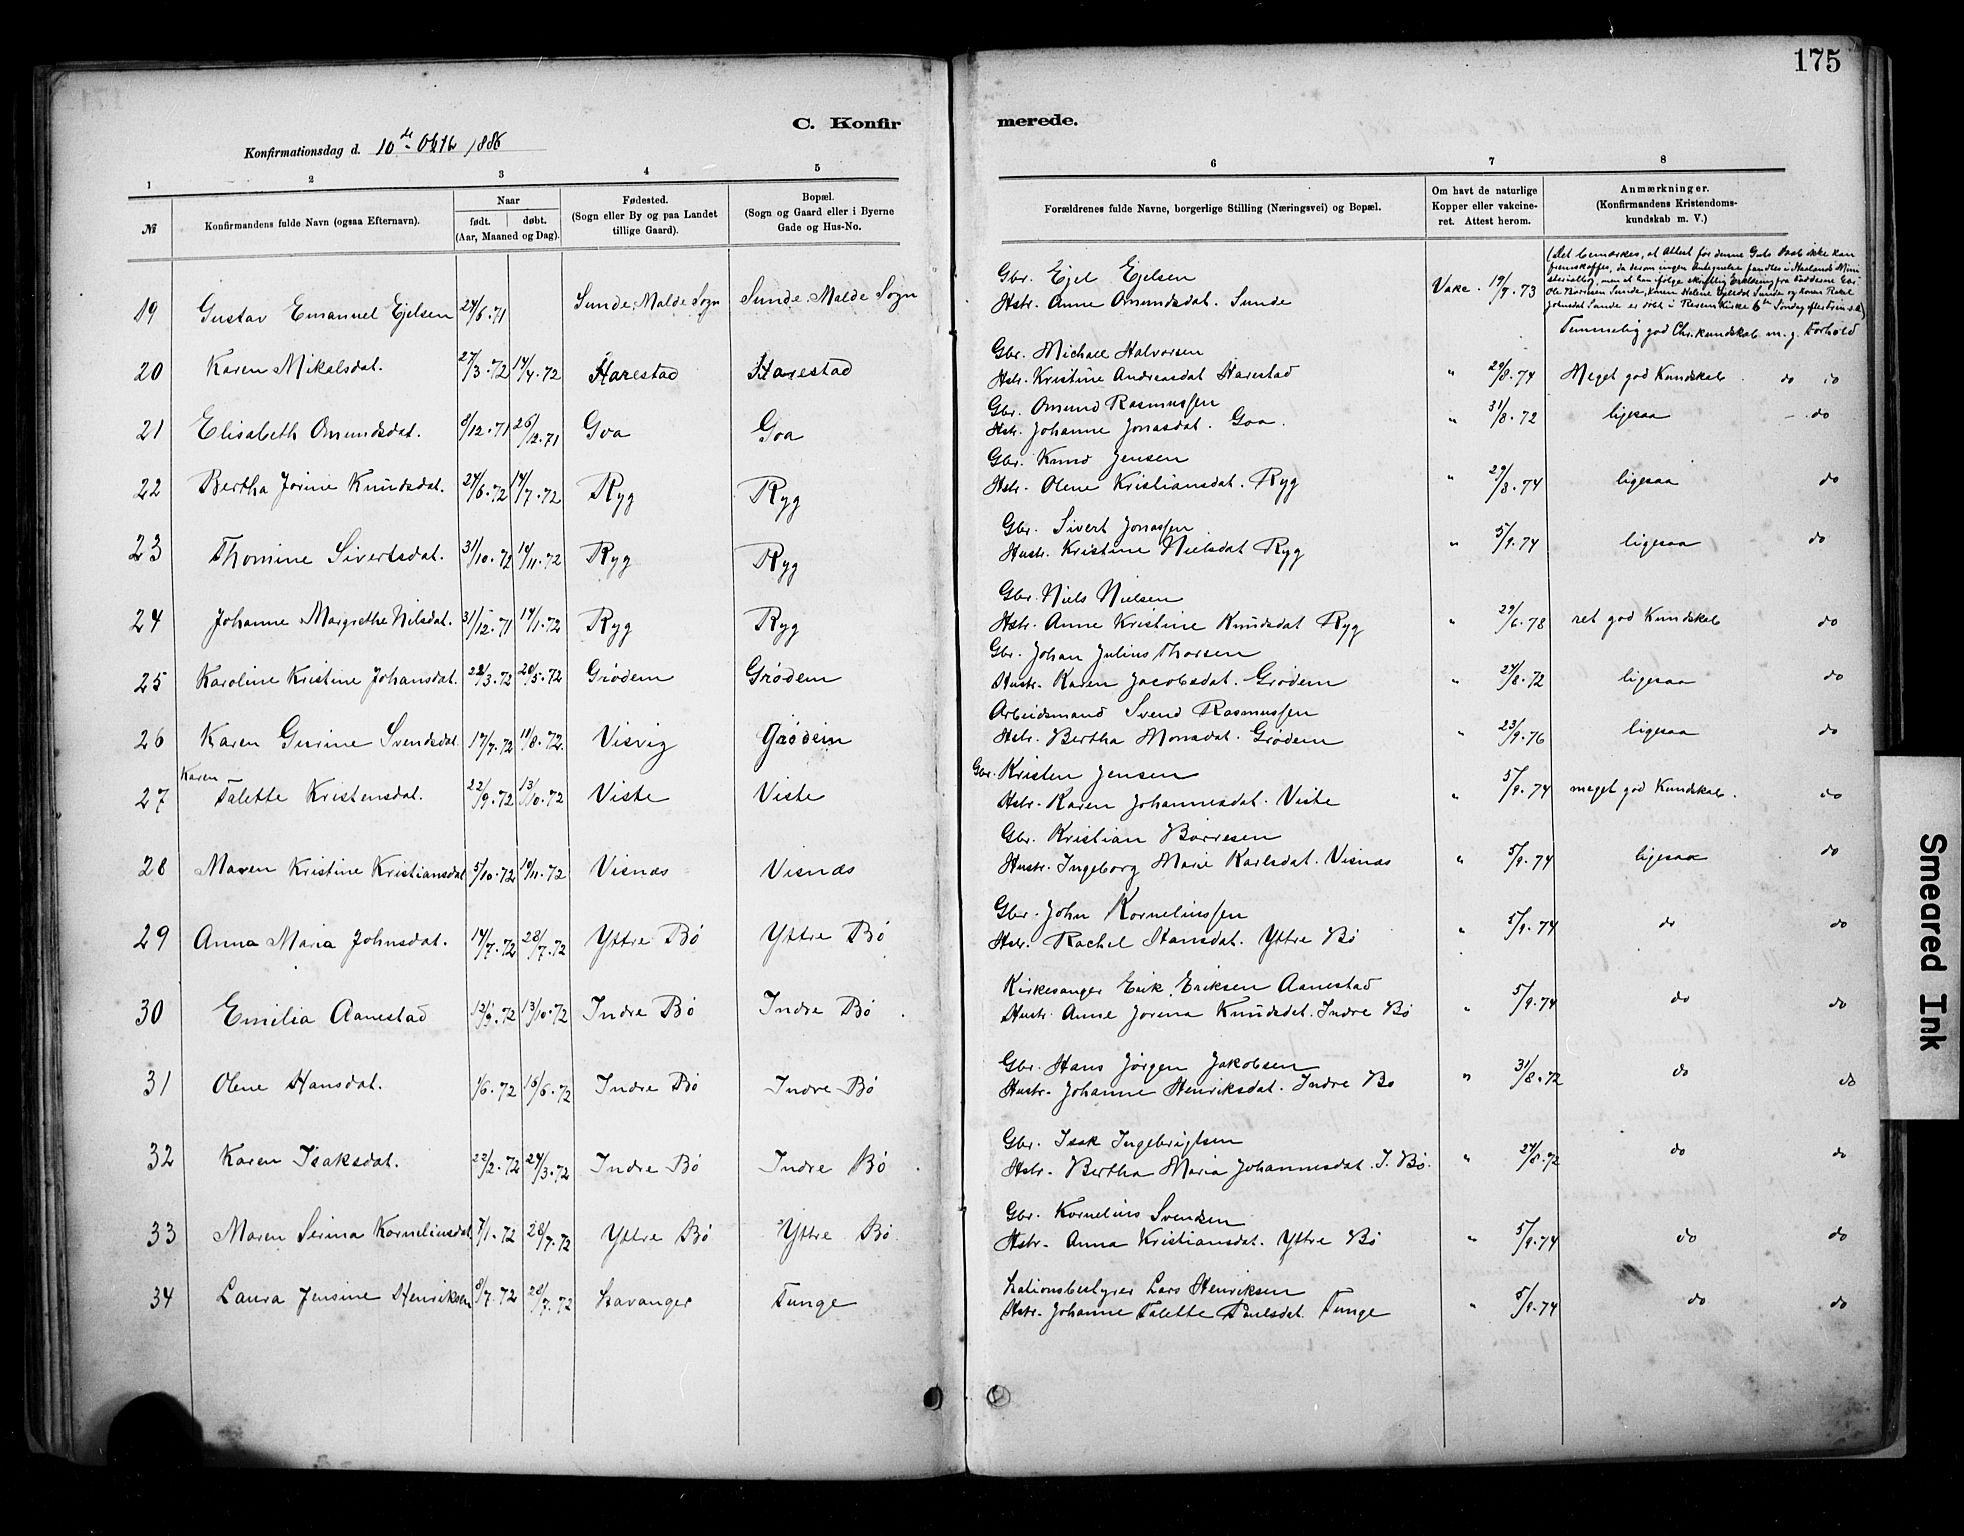 175
C. Konfirmerede.
Konfirmationsdag d. 10de Oktb 1886
1 2 3 4 5 6 7 8
№
Konfirmandens fulde Navn (ogsaa Efternavn).
Naar
født. døbt.
(Aar, Maaned og Dag).
Fødested.
(Sogn eller By og paa Landet
tillige Gaard).
Bopæl.
(Sogn og Gaard eller i Byerne
Gade og Hus-No.
Forældrenes fulde Navne, borgerlige Stilling (Næringsvei) og Bopæl.
Om havt de naturlige
Kopper eller vakcine-
ret. Attest herom.
Anmærkninger.
(Konfirmandens Kristendoms-
kundskab m. V.)
19 Gustav Emanuel Ejelsen 24/6.71 Sunde, Malde Sogn Sunde, Malde Sogn
Gbr. Ejel Ejelsen
Hstr. Anne Omundsdat. Sunde Vakc. 19/7.73
(Det bemærkes, at Attest for denne Guts Daab ikke kan
Temmelig god Chr.kundskab m. g. Forhold
20 Karen Mikalsdat. 27/3.72 14/4.72 Harestad Harestad
Gbr. Michael Halvorsen
Hstr. Kristine Andreasdat Harestad " 29/8.74 Meget god Kundskab. do do
21 Elisabeth Omundsdat. 8/12.71 26/12.71 Goa Goa
Gbr. Omund Rasmussen
Hstr. Johanne Jonasdat. Goa. " 31/8.72 ligesaa do
22 Bertha Jorine Knudsdat. 24/6.72 14/7.72 Ryg Ryg
Gbr. Knud Jensen
Hstr. Olene Kristiansdat. Ryg " 29/8.74 ligesaa do
23 Thomine Sivertsdat. 31/10.72 14/11.72 Ryg Ryg
Gbr. Sivert Jonassen
Hustr. Kristine Nielsdat Ryg " 5/9.74 ligesaa do
24 Johanne Margrethe Nilsdat. 31/12.71 14/1.72 Ryg Ryg
Gbr. Niels Nielsen
Hstr. Anne Kristine Knudsdat Ryg " 29/6.78 ret god Kundskab do
25 Karoline Kristine Johansdat. 22/3.72 20/5.72 Grødem Grødem
Gbr. Johan Julius Thorsen
Hustr. Karen Jacobsdat. Grødem " 27/8.72 ligesaa do
26 Karen Gurine Svendsdat 17/7.72 11/8.72. Visvig Grødem
Arbeidsmand Svend Rasmussen
Hstr. Bertha Monsdat. Grødem " 23/9.76 ligesaa do
27 Karen Talette Kristensdat. 22/9.72 13/10.72 Viste Viste
Gbr. Kristen Jensen
Hstr. Karen Johannesdat. Viste " 5/9.74 meget god Kundskab. do
28 Maren Kristine Kristiansdat 5/10.72 10/11.72 Visnæs Visnæs
Gbr. Kristian Børresen
Hustr. Ingeborg Marie Karlsdat. Visnæs " 5/9.74 ligesaa do
29 Anna Maria Johnsdat. 14/7.72 28/7.72 Yttre Bø Yttre Bø
Gbr. John Korneliussen
Hstr. Rachel Hansdat. Yttre Bø " 5/9.74 do do
30 Emilia Aanestad 12/9.72 13/10.72 Indre Bø Indre Bø.
Kirkesanger Erik Eriksen Aanestad
Hustr. Anne Jorina Knudsdat. Indre Bø " 5/9.74 do do
31 Olene Hansdat. 1/6.72 16/6.72 Indre Bø Indre Bø
Gbr. Hans Jørgen Jakobsen
Hustr. Johanne Henriksdat. Indre Bø " 31/8.72 do do
32 Karen Isaksdat. 22/2.72 24/3.72 Indre Bø Indre Bø.
Gbr. Isak Ingebrigtsen
Hstr. Bertha Maria Johannesdat. I. Bø. " 27/8.72 do do
33 Maren Serina Korneliusdat 7/1.72 28/7.72 Yttre Bø Yttre Bø
Gbr. Kornelius Svendsen
Hstr. Anna Kristiansdat. Yttre Bø " 5/9.74 do do
34 Laura Jensine Henriksen 8/7.72 28/7.72 Stavanger Tunge
Lars Henriksen
Hstr. Johanne Talette Poulsdat. Tunge " 5/9.74 do do
Smeared Ink